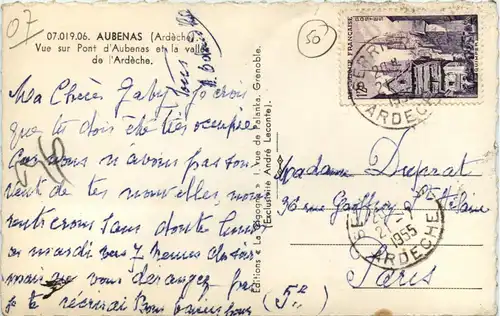 07
07.019.06. AUBENAS (Ardèche).
Vue sur Pont d'Aubenas et la vallée
de l'Ardèche.
50
Ma Chère Gaby, je crois
que tu dois être très occupée
car nous n'avons pas sou
vent de tes nouvelles, nous
rentrerons sans doute lundi
ou mardi vers 7 heures du soir
mais ne vous dérangez pas
je te récrirai
Editions « La Cigogne » 1, rue de Palanka, Grenoble.
Exclusivité André Leconte).
POSTES
ARDECHE
Madame Duprat
36 rue Geoffroy St Hilaire
Paris
(5e)
1955
ARDECHE